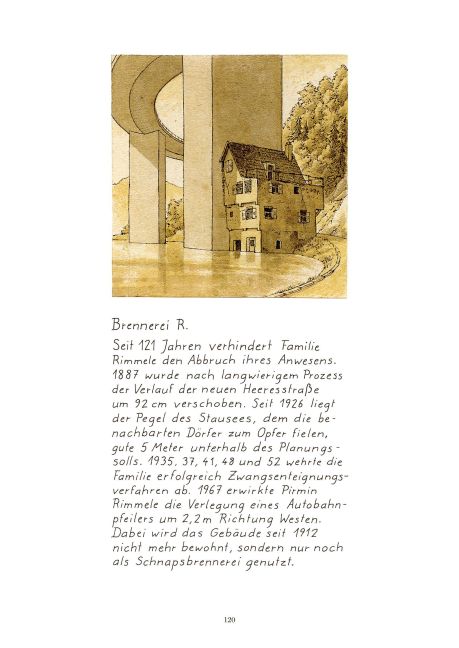 Brennerei R.
Seit 121 Jahren verhindert Familie
Rimmele den Abbruch ihres Anwesens.
1887 wurde nach langwierigem Prozess
der Verlauf der neuen Heeresstraße
um 92 cm verschoben. Seit 1926 liegt
der Pegel des Stausees, dem die be-
nachbarten Dörfer zum Opfer fielen,
gute 5 Meter unterhalb des Planungs-
solls. 1935, 37, 41, 48 und 52 wehrte die
Familie erfolgreich Zwangsenteignungs-
verfahren ab. 1967 erwirkte Pirmin
Rimmele die Verlegung eines Autobahn-
pfeilers um 2,2 m Richtung Westen.
Dabei wird das Gebäude seit 1912
nicht mehr bewohnt, sondern nur noch
als Schnapsbrennerei genutzt.
120